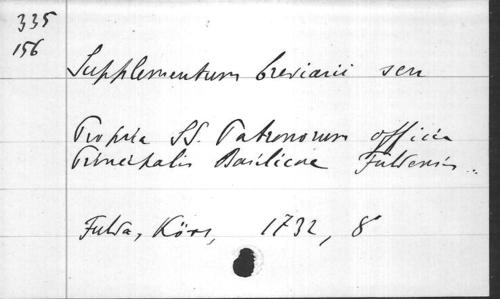 335
156
Supplementum breviarii seu
Propria SS. Patronorum officia
Principalis Basilicae Fuldensis..
Fulda, Körs, 1732, 8